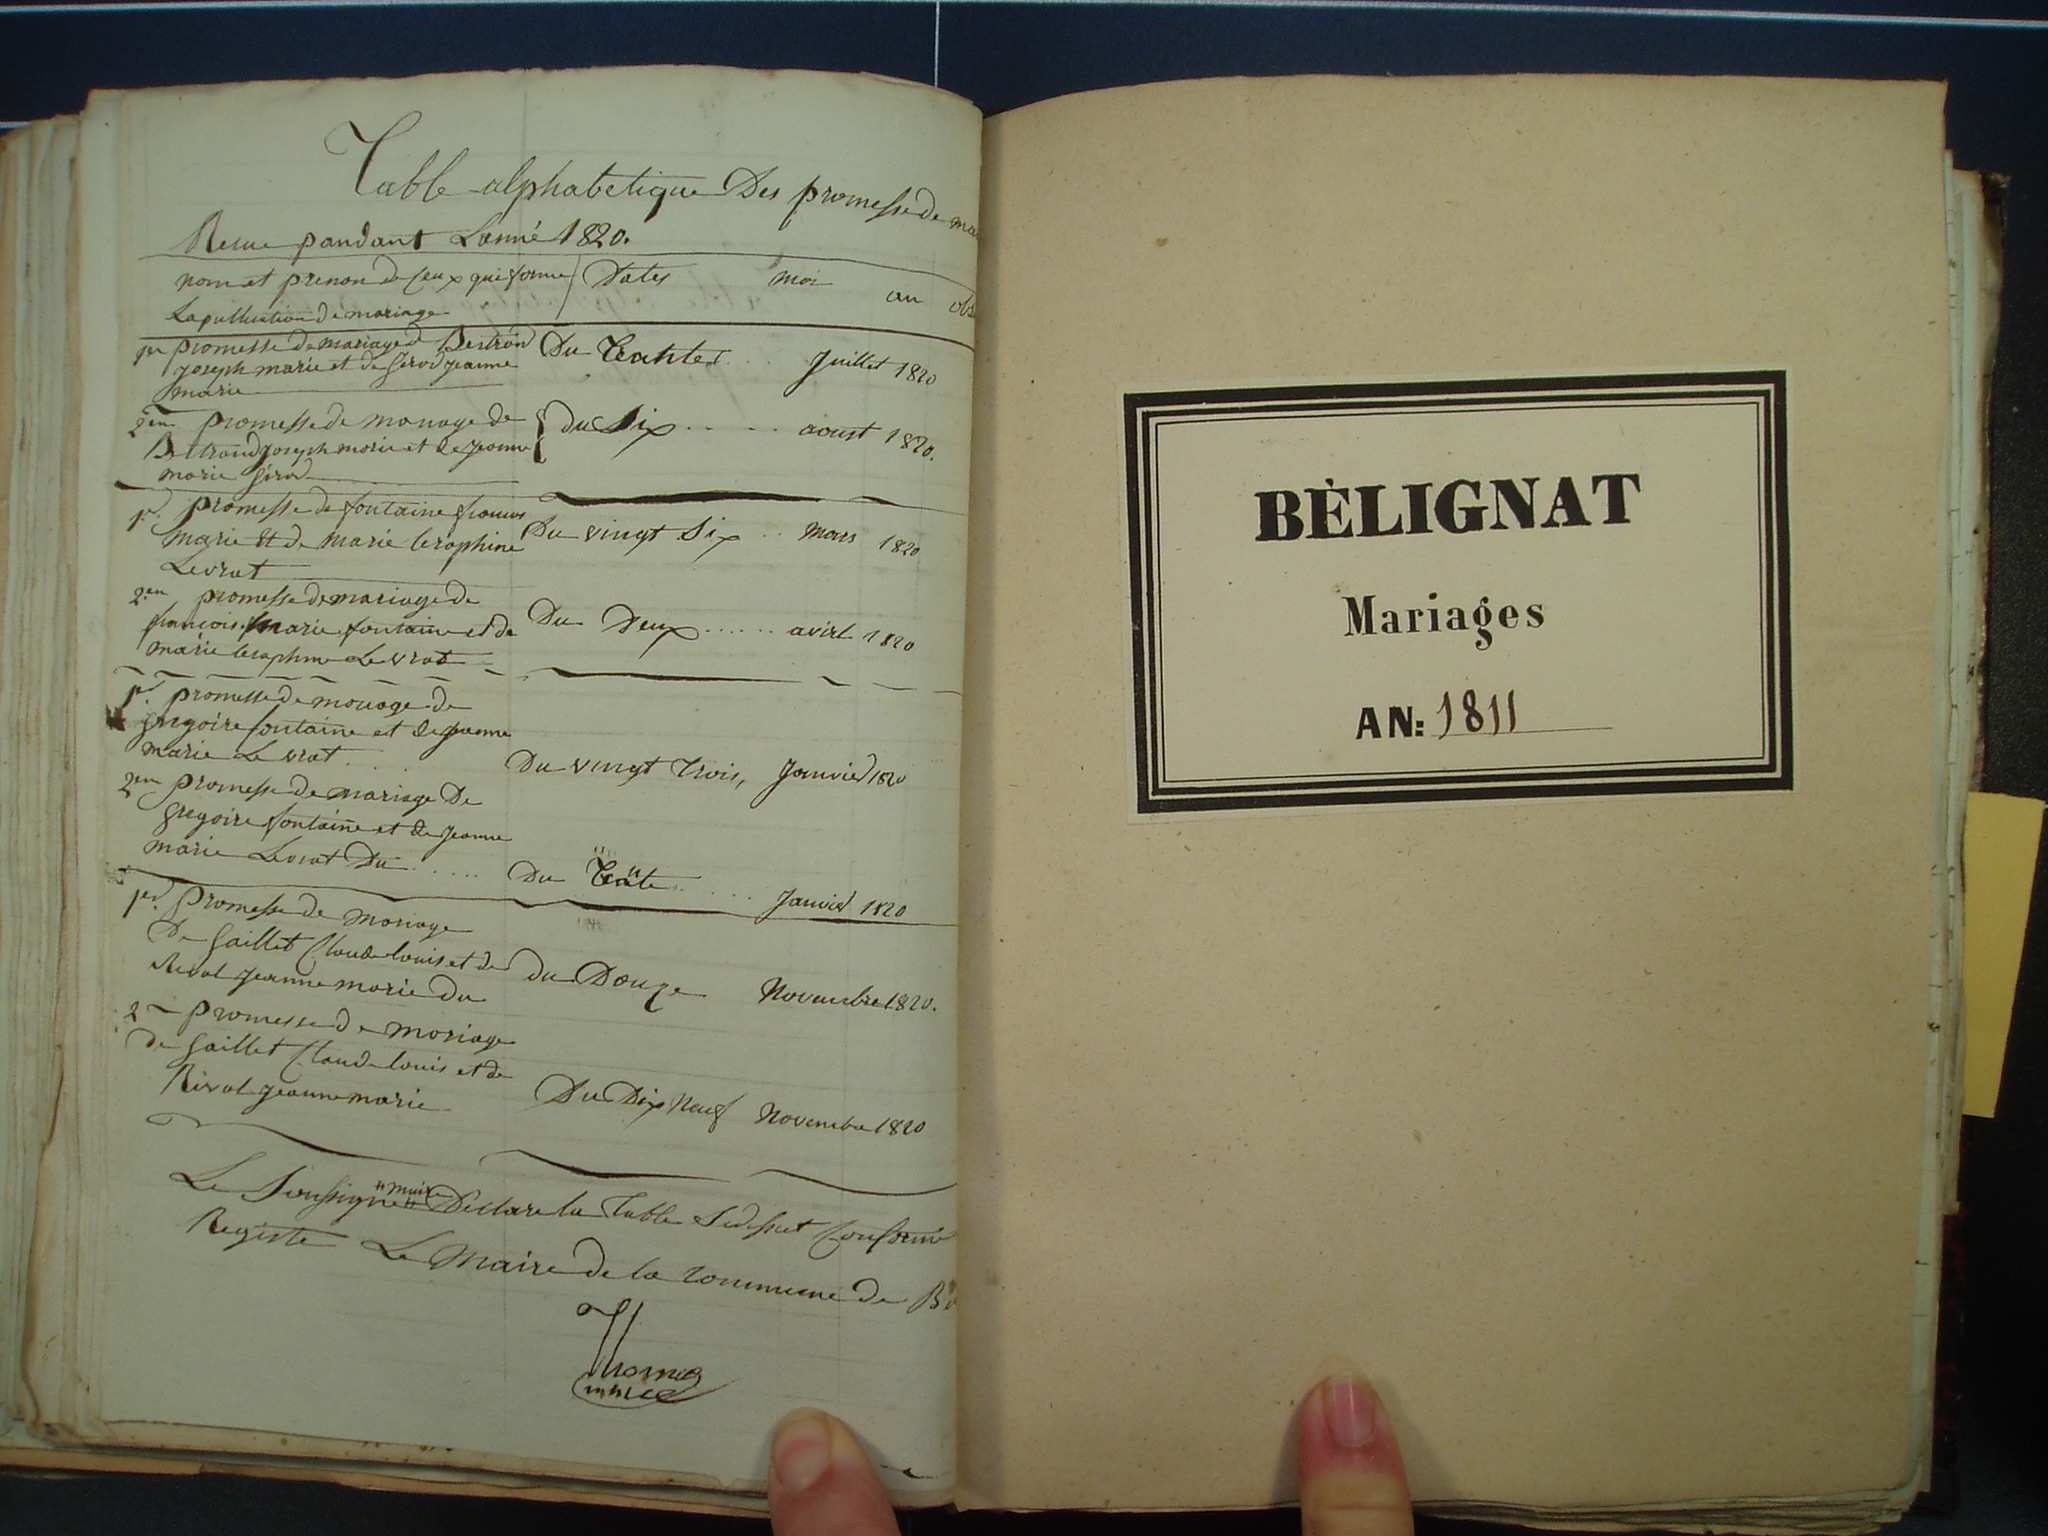 Table alphabetique Des promesse de ma
Recue pandant Lanné 1820.
nom et prenon de Ceux qui forme Dates moi an obs
La publication de mariage
1er promesse de mariage d Bertrand Du Trante Juillet 1820
joseph marie et de Girod jeanne
marie
2em promesse de mariage de du Six aoust 1820.
Bertrand joseph marie et de jeanne
marie Girod
1er promesse de fontaine francois Du vingt Six mars 1820
marie et de marie Seraphine
Levrat
2em promesse de mariage de
francois marie fontaine et de Du Deux avirl 1820
marie Seraphine Levrat
1er promesse de mariage de
gregoire fontaine et de jeanne
marie Le vrat Du vingt Trois, Janvier 1820
2em promesse de mariage De
gregoire fontaine et de jeanne
marie Levrat Du Du Trante Janvier 1820
1er promesse de mariage
De Gaillet Claude louis et de du Douze Novembre 1820.
Rival jeanne marie Du
2 promesse de mariage
de Gaillet Claude louis et de
Rival jeanne marie Du Dix Neuf Novembre 1820
Le Soussigné maire Déclare la Table Sudessut Conforme
Registe Le Maire de la commune de Bé
Thomas
maire
BÉLIGNAT
Mariages
AN: 1811